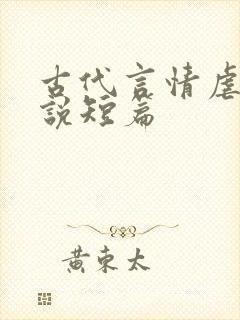 古代言情虐
說短篇
黃東太